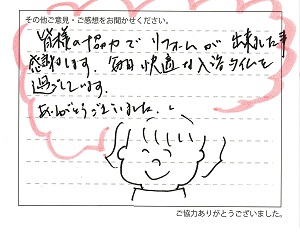 その他ご意見・ご感想をお聞かせください。
皆様の協力でリフォームが出来ました事
感謝します。毎日快適な入浴タイムを
過ごしています。
ありがとうございました。
ご協力ありがとうございました。